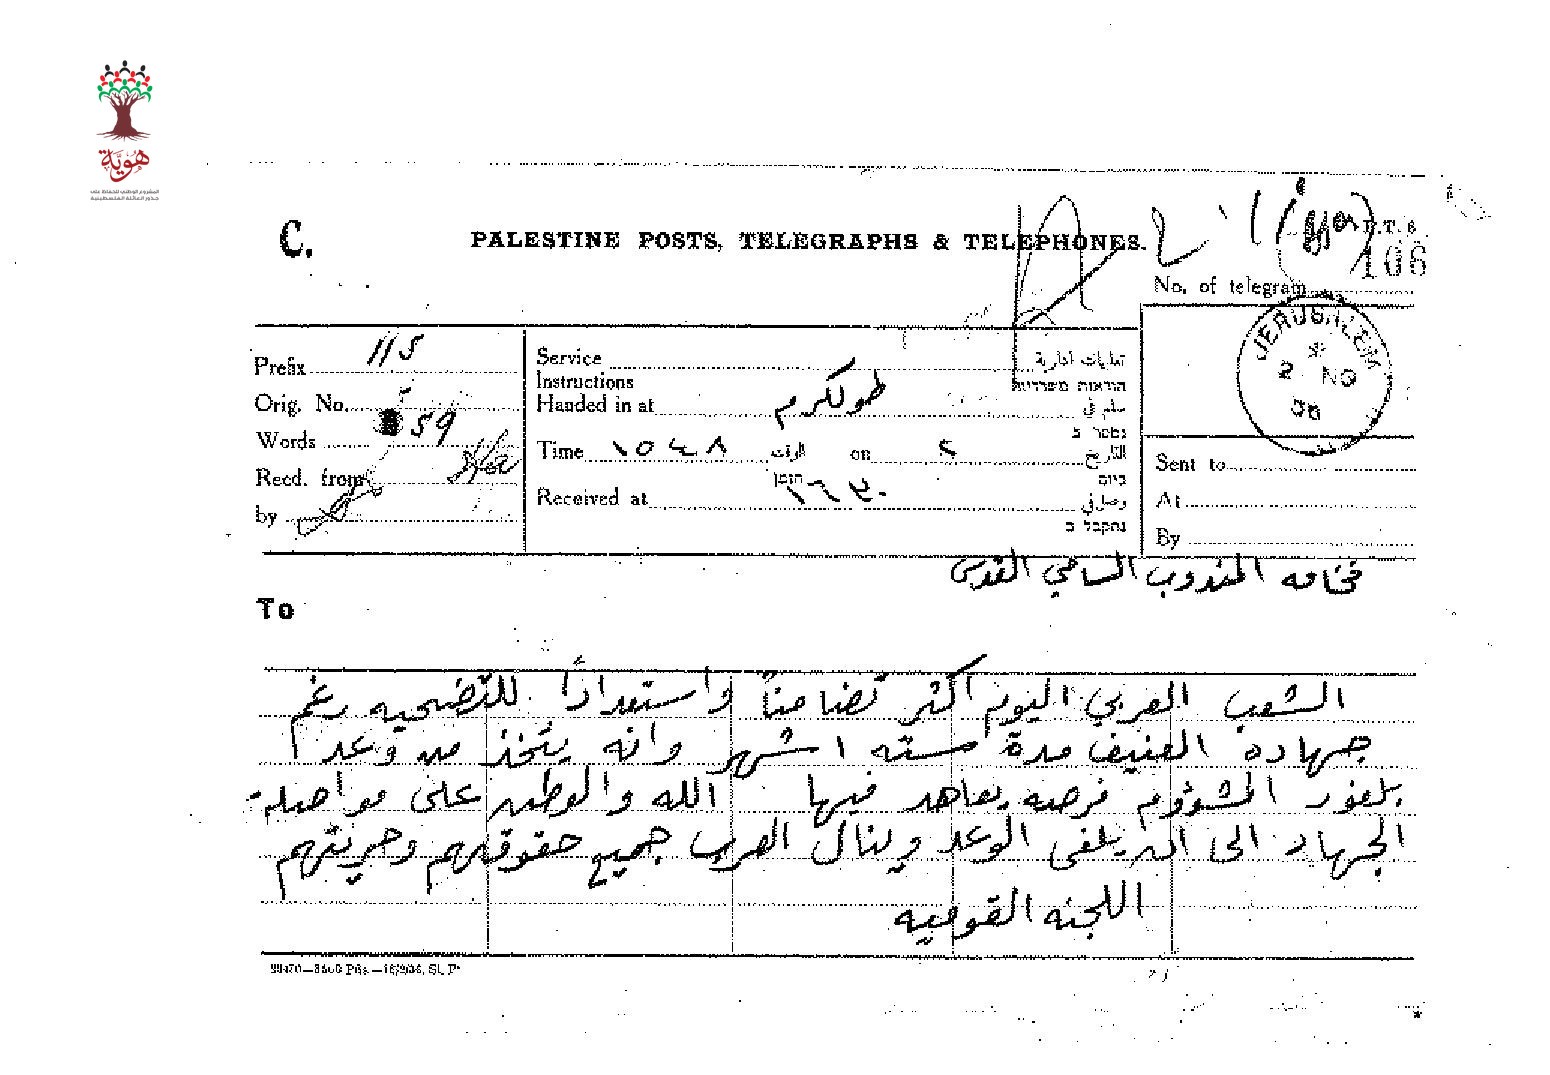 هويّة
المشروع الوطني للحفاظ على
جذور العائلة الفلسطينية
C.
PALESTINE POSTS, TELEGRAPHS & TELEPHONES.
P.T. 8
106
No. of telegram
JERUSALEM
2 NO
36
Prefix 115
Orig. No.
Words 59
Recd. from
by
Service تعليمات ادارية
Instructions הוראות משרדיות
Handed in at طولكرم سلم في
נמסר ב
Time ١٥ ٤٨ الوقت on ٢ التاريخ
הזמן ביום
Received at ١٦ ٣٠ وصل في
נתקבל ב
Sent to
At
By
To
فخامه المندوب السامي القدس
الشعب العربي اليوم اكثر تضامناً واستعداداً للتضحيه رغم
جهاده العنيف مدة سته اشهر وانه يتخذ من وعد
بلفور المشؤوم فرصه يعاهد فيها الله والوطن على مواصلة
الجهاد الى ان يلغى الوعد وينال العرب جميع حقوقهم وحريتهم
اللجنه القوميه